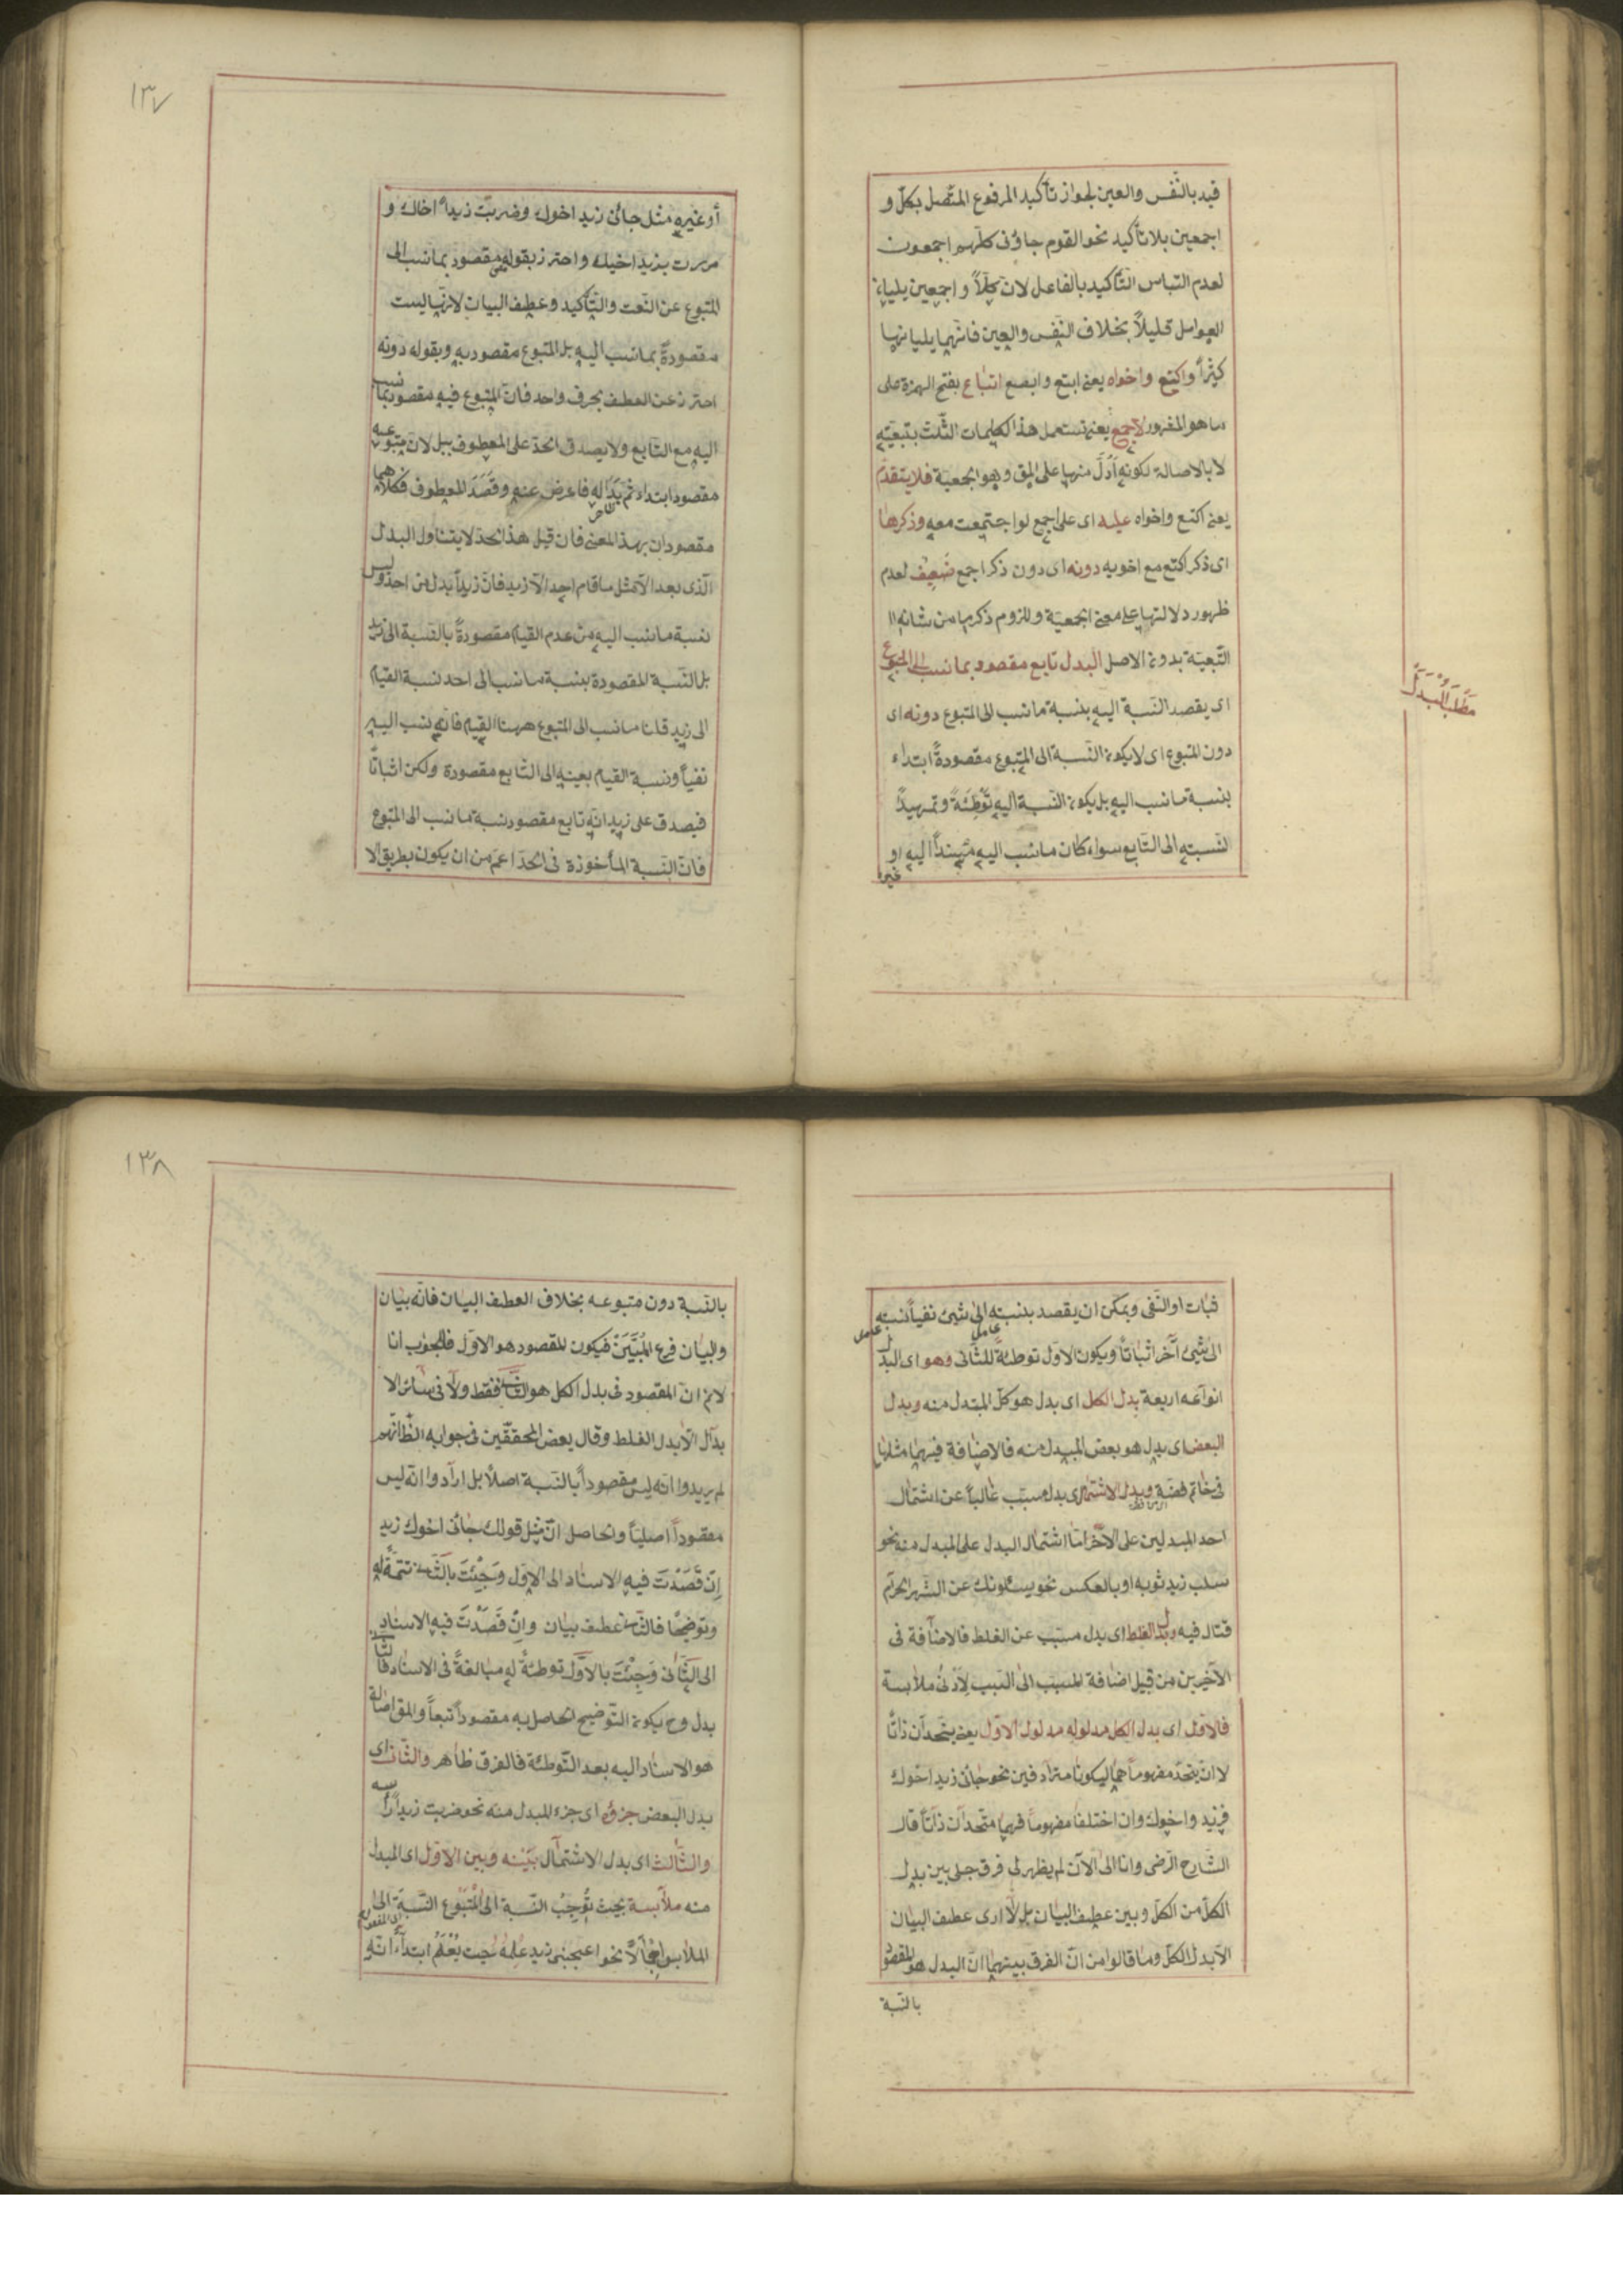 قيد بالنّفس والعين لجواز تأكيد المرفوع المتّصل بكلّ و
اجمعين بلا تأكيد نحو القوم جاؤنى كلّهم اجمعون
لعدم التباس التّأكيد بالفاعل لانّ كلّاً و اجمعين يليان
العوامل قليلاً بخلاف النّفس والعين فانّهما يليانها
كثيراً واكتع واخواه يعنى ابتع وابصع اتباع بفتح الهمزة على
ما هو المشهور لاجمع يعنى تستعمل هذا الكلمات الثّلث بتبعيّته
لا بالاصالة لكونه أدلّ منها على المق وهو الجمعية فلا يتقدم
يعنى اكتع واخواه عليه اى على اجمع لو اجتمعت معه وذكرها
اى ذكر اكتع مع اخويه دونه اى دون ذكر اجمع ضعيف لعدم
ظهور دلالتها على معنى الجمعيّة وللزوم ذكر ما من شانه ا
التّبعيّة بدونه الاصل البدل تابع مقصود بما نسب الى المتبوع
مطلب البدل
اى يقصد النّسبة اليه بنسبة ما نسب الى المتبوع دونه اى
دون المتبوع اى لا يكون النّسبة الى المتبوع مقصودةً ابتداء
بنسبة ما نسب اليه بل يكون النّسبة اليه توطئةً وتمهيداً
لنسبته الى التّابع سواء كان ما نسب اليه مسنداً اليه او
غيره
١٣٧
أو غيره مثل جائنى زيد اخوك وضربت زيداً اخاك و
مررت بزيد اخيك واحترز بقوله مقصود بما نسب الى
المتبوع عن النّعت والتّأكيد وعطف البيان لانّها ليست
مقصودةً بما نسب اليه بل المتبوع مقصود به وبقوله دونه
احترز عن العطف بحرف واحد فانّ المتبوع فيه مقصود بما نسب
اليه مع التّابع ولا يصدق الحدّ على المعطوف ببل لانّ متبوعه
مقصود ابتداء ثمّ بدا له فاعرض عنه وقصد المعطوف فكلاهما
مقصودان بهذا المعنى فان قيل هذا الحدّ لا يتناول البدل
الّذى بعد الّا مثل ما قام احد الّا زيد فانّ زيداً بدل من احد وليس
نسبة ما نسب اليه من عدم القيام مقصودةً بالنّسبة الى زيد
بل النّسبة المقصودة بنسبة ما نسب الى احد نسبة القيام
الى زيد قلنا ما نسب الى المتبوع ههنا القيام فانّه نسب اليه
نفياً ونسبة القيام بعينه الى التّابع مقصودة ولكن اثباتاً
فيصدق على زيد انّه تابع مقصود نسبة ما نسب الى المتبوع
فانّ النّسبة المأخوذة فى الحدّ اعمّ من ان يكون بطريق الا
ثبات او النّفى ويمكن ان يقصد بنسبته الى شيئ نفياً نسبته
الى شيئ آخر اثباتاً ويكون الاوّل توطئةً للثّانى وهو اى البدل
انواعه اربعة بدل الكل اى بدل هو كلّ المبدل منه وبدل
البعض اى بدل هو بعض المبدل منه فالاضافة فيهما مثلها
فى خاتم فضّة وبدل الاشتمال اى بدل مسبّب غالباً عن اشتمال
احد المبدلين على الآخر امّا اشتمال البدل على المبدل منه نحو
سلب زيد ثوبه او بالعكس نحو يسئلونك عن الشّهر الحرام
قتال فيه وبدل الغلط اى بدل مسبّب عن الغلط فالاضافة فى
الاخيرين من قبيل اضافة المسبّب الى السّبب لأدنى ملابسة
فالاوّل اى بدل الكل مدلوله مدلول الاوّل يعنى يتّحدان ذاتاً
لا ان يتّحد مفهوماهما ليكونا مترادفين نحو جائنى زيد اخوك
فزيد واخوك وان اختلفا مفهوماً فهما متّحدان ذاتاً قال
الشّارح الرّضى وانا الى الآن لم يظهر لى فرق جلى بين بدل
الكلّ من الكلّ وبين عطف البيان بل لا ارى عطف البيان
الّا بدل الكلّ وما قالوا من انّ الفرق بينهما انّ البدل هو المقصود
بالنّسبة
١٣٨
بالنّسبة دون متبوعه بخلاف العطف البيان فانّه بيان
والبيان فرع المبيّن فيكون المقصود هو الاوّل فالجواب انا
لا نم انّ المقصود فى بدل الكل هو الثّانى فقط ولا فى سائر الا
بدال الّا بدل الغلط وقال بعض المحقّقين فى جوابه الظّ انّهم
لم يريدوا انّه ليس مقصوداً بالنّسبة اصلاً بل ارادوا انّه ليس
مقصوداً اصلياً والحاصل انّ مثل قولك جائنى اخوك زيد
إن قصدت فيه الاسناد الى الاوّل وجئت بالثّانى تتمّةً له
وتوضيحاً فالثّانى عطف بيان وإن قصدت فيه الاسناد
الى الثّانى وجئت بالاوّل توطئةً له مبالغةً فى الاسناد فالثّانى
بدل وح يكون التّوضيح الحاصل به مقصوداً تبعاً والمق اصالة
هو الاسناد اليه بعد التّوطئة فالفرق ظاهر والثّانى اى
بدل البعض جزؤه اى جزء المبدل منه نحو ضربت زيداً رأسه
والثّالث اى بدل الاشتمال بينه وبين الاوّل اى المبدل
منه ملابسة بحيث توجب النّسبة الى المتبوع النّسبة الى
الملابس اجمالاً نحو اعجبنى زيد علمه حيث يعلم ابتداءً انّه